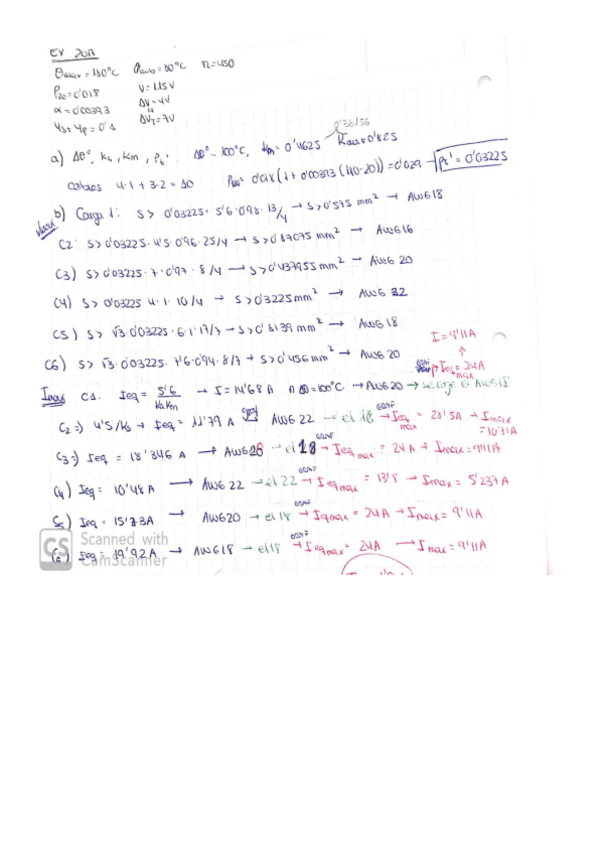 EX 20A
θmax = 130°C θamb = 30°C n = 450
ρ20 = 0'018 V = 115 V
α = 0'00393 ΔV = 4V
ΔVT = 7V
a) Δθ°, kh, km, ρt' Δθ° = 100°C, km = 0'4625
ρ110 = 0'018 (1 + 0'00393 (110-20)) = 0'029 → ρt' = 0'03225
cables 4·1 + 3·2 = 10
b) Carga 1: S > 0'03225 · 5'6 · 0'98 · 13/4 → S > 0'575 mm² → AWG 18
C2: S > 0'03225 · 4'5 · 0'96 · 25/4 → S > 0'87075 mm² → AWG 16
C3) S > 0'03225 · 7 · 0'97 · 8/4 → S > 0'437955 mm² → AWG 20
C4) S > 0'03225 · 4 · 1 · 10/4 → S > 0'3225 mm² → AWG 22
C5) S > √3 · 0'03225 · 6 · 1 · 13/7 → S > 0'6139 mm² → AWG 18
C6) S > √3 · 0'03225 · 7'6 · 0'94 · 8/7 → S > 0'456 mm² → AWG 20
I = 9'11A
Imax C1. Ieq = 5'6 / kakm → I = 14'68 A Δθ = 100°C → AWG 20 → se coge el AWG 18 Ieq max = 24A
C2 => 4'5/ks → Ieq = 11'79 A AWG 22 → el 18 → Ieq max = 28'5A → Imax = 10'81A
C3 => Ieq = 18'346 A → AWG 28 → el 18 → Ieq max = 24 A → Imax = 9'11 A
C4) Ieq = 10'48 A → AWG 22 → el 22 → Ieq max = 13'8 → Imax = 5'237 A
C5) Ieq = 15'73A → AWG 20 → el 18 → Ieq max = 24A → Imax = 9'11A
C6) Ieq = 19'92 A → AWG 18 → el 18 → Ieq max = 24A → Imax = 9'11A
CS Scanned with CamScanner